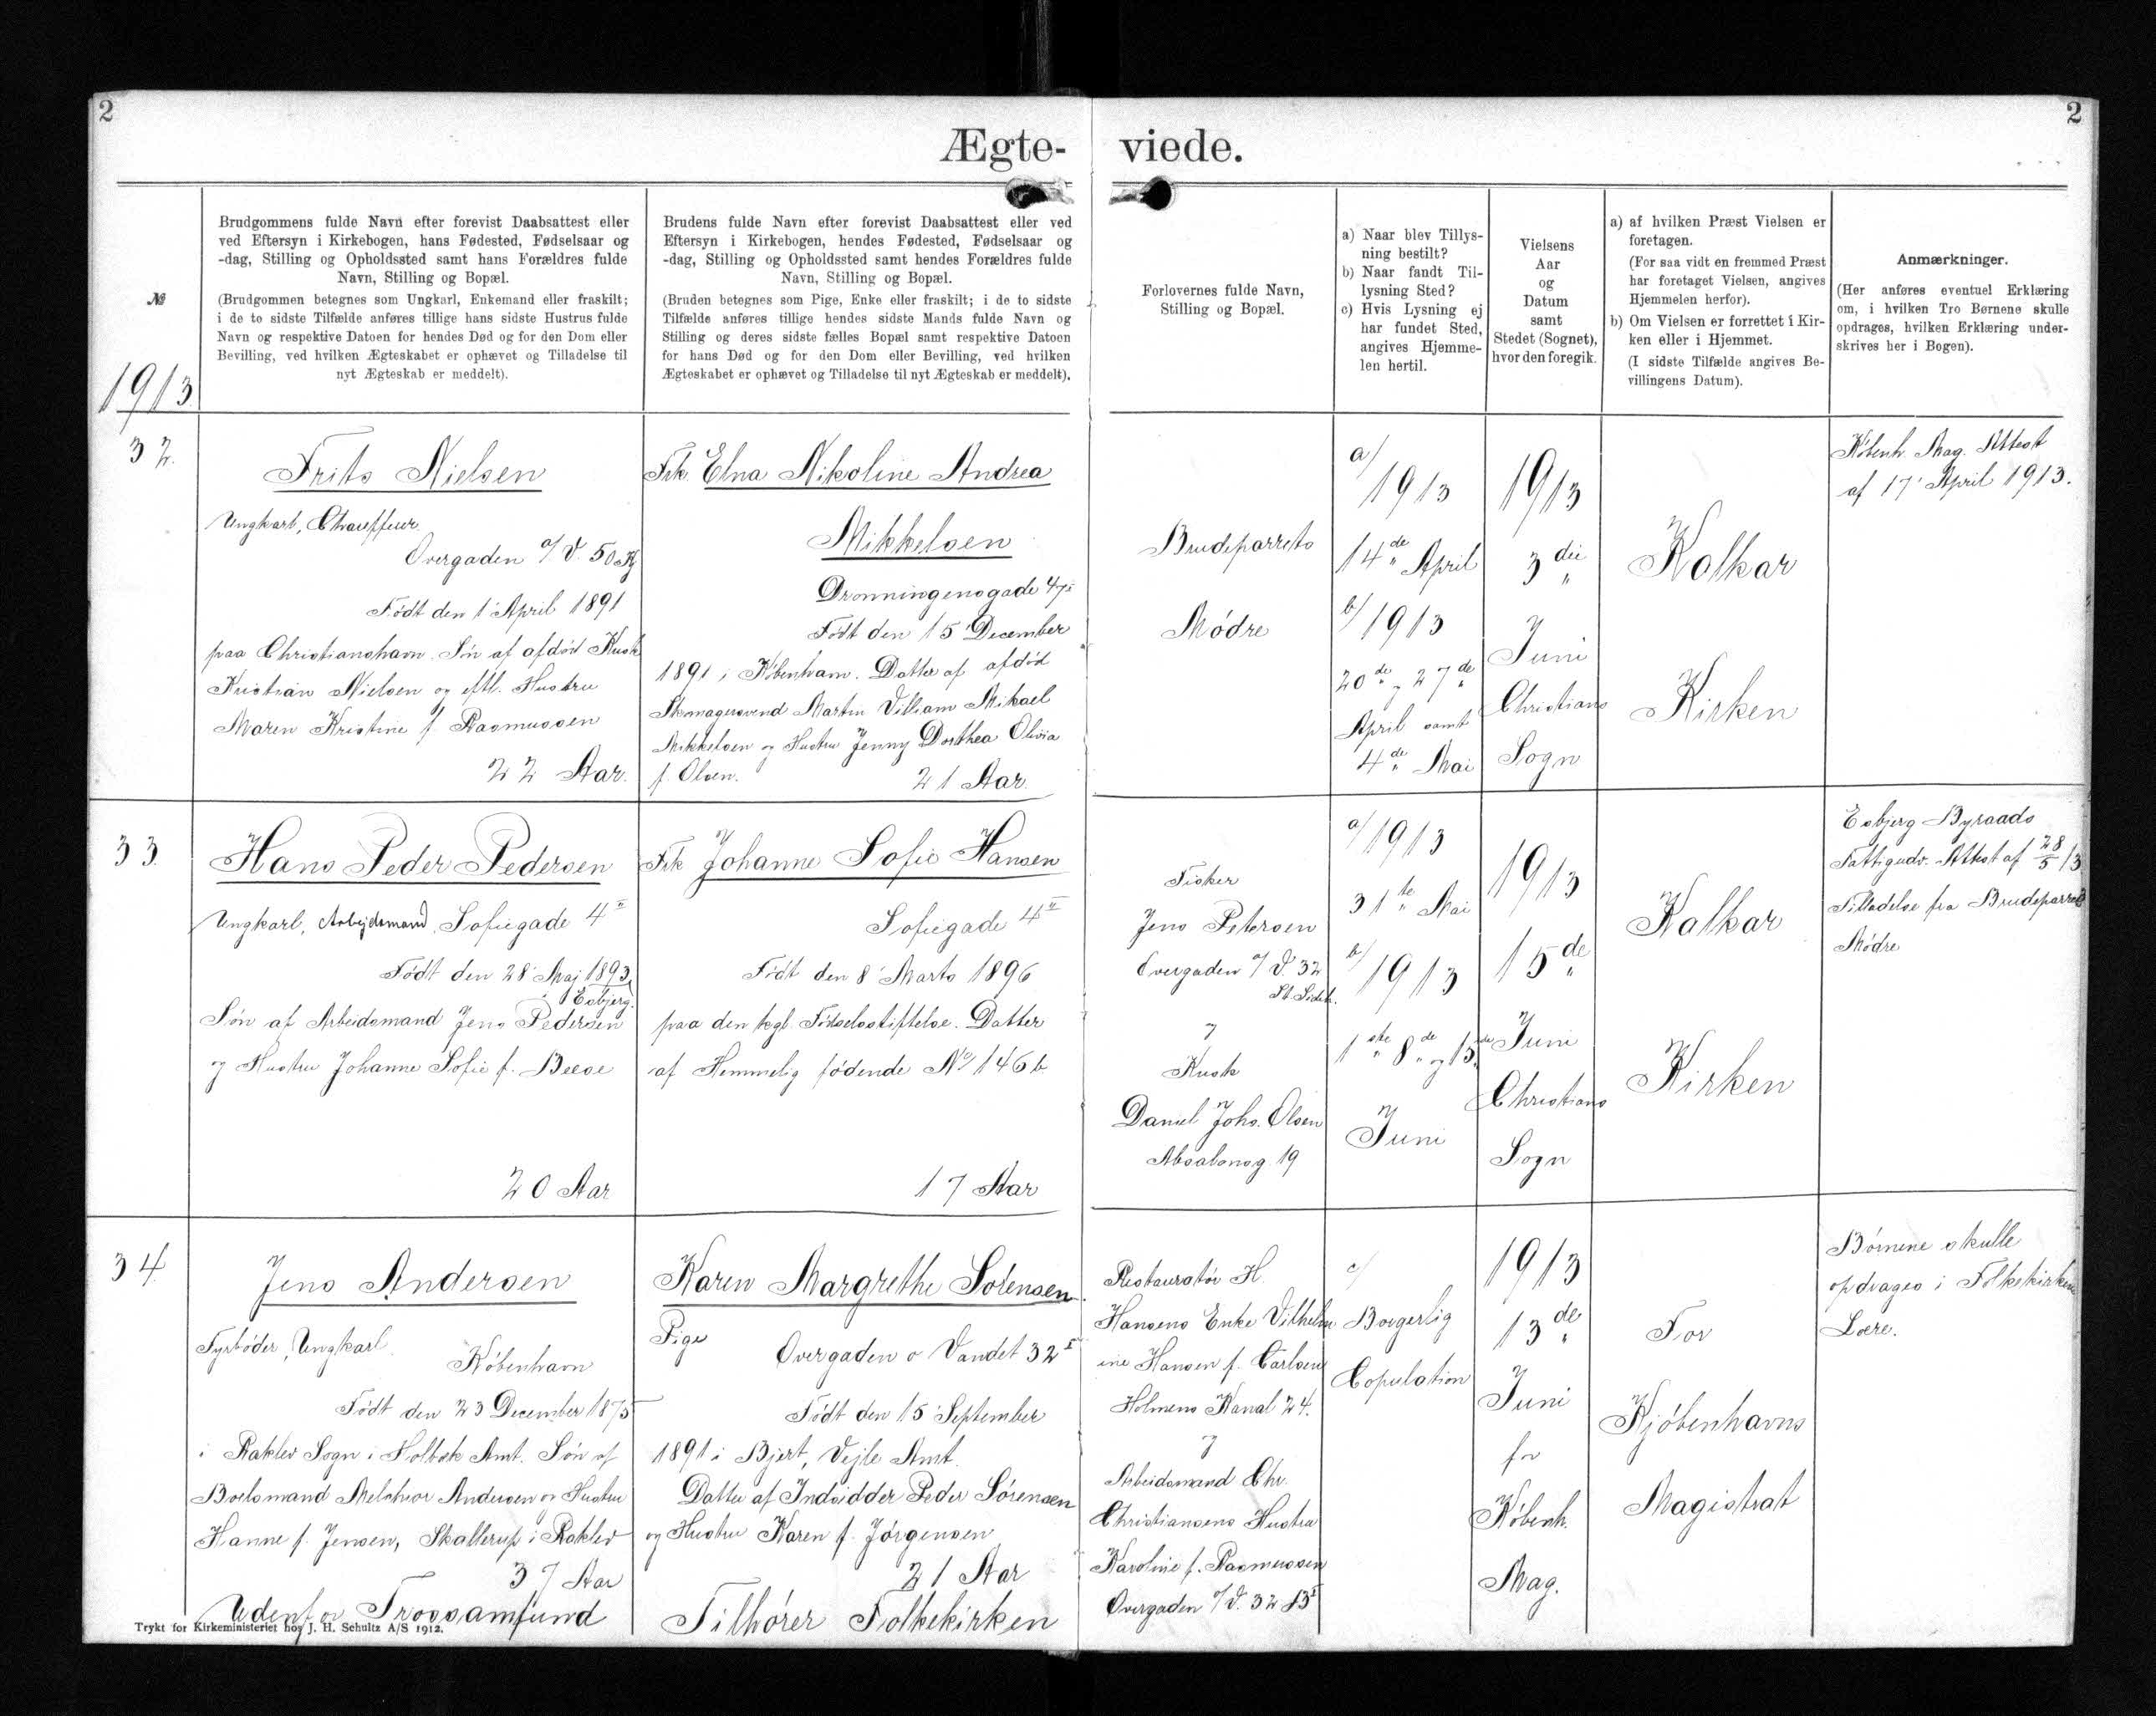 2
2
Ægte-
viede.
№
1913.
Brudgommens fulde Navn efter forevist Daabsattest eller
ved Eftersyn i Kirkebogen, hans Fødested, Fødselsaar og
-dag, Stilling og Opholdssted samt hans Forældres fulde
Navn, Stilling og Bopæl.
(Brudgommen betegnes som Ungkarl, Enkemand eller fraskilt;
i de to sidste Tilfælde anføres tillige hans sidste Hustrus fulde
Navn og respektive Datoen for hendes Død og for den Dom eller
Bevilling, ved hvilken Ægteskabet er ophævet og Tilladelse til
nyt Ægteskab er meddelt).
Brudens fulde Navn efter forevist Daabsattest eller ved
Eftersyn i Kirkebogen, hendes Fødested, Fødselsaar og
-dag, Stilling og Opholdssted samt hendes Forældres fulde
Navn, Stilling og Bopæl.
(Bruden betegnes som Pige, Enke eller fraskilt; i de to sidste
Tilfælde anføres tillige hendes sidste Mands fulde Navn og
Stilling og deres sidste fælles Bopæl samt respektive Datoen
for hans Død og for den Dom eller Bevilling, ved hvilken
Ægteskabet er ophævet og Tilladelse til nyt Ægteskab er meddelt).
Forlovernes fulde Navn,
Stilling og Bopæl.
a) Naar blev Tillys-
ning bestilt?
b) Naar fandt Til-
lysning Sted?
c) Hvis Lysning ej
har fundet Sted,
angives Hjemme-
len hertil.
Vielsens
Aar
og
Datum
samt
Stedet (Sognet),
hvor den foregik.
a) af hvilken Præst Vielsen er
foretagen.
(For saa vidt en fremmed Præst
har foretaget Vielsen, angives
Hjemmelen herfor).
b) Om Vielsen er forrettet i Kir-
ken eller i Hjemmet.
(I sidste Tilfælde angives Be-
villingens Datum).
Anmærkninger.
(Her anføres eventuel Erklæring
om, i hvilken Tro Børnene skulle
opdrages, hvilken Erklæring under-
skrives her i Bogen).
32.
Frits Nielsen
Ungkarl, Chauffeur
Overgaden o/V. 50
Født den 1' April 1891
paa Christianshavn. Søn af afdød Kusk
Kristian Nielsen og eftl. Hustru
Maren Kristine f. Rasmussen
22 Aar.
Frk. Elna Nikoline Andrea
Mikkelsen
Dronningensgade 47
Født den 15' December
1891 i København. Datter af afdød
Skomagersvend Martin Villiam Mikael
Mikkelsen og Hustru Jenny Dorthea Olivia
f. Olsen.
21 Aar.
Brudeparrets
Mødre
a/
1913
14de April
b/ 1913
20de og 27de
April samt
4de Mai
1913
3die
Juni
Christians
Sogn
Kalkar
Kirken
Københ. Mag. Attest
af 17' April 1913.
33.
Hans Peder Pedersen
Ungkarl, Arbejdsmand Sofiegade 4 II
Født den 28' Maj 1893
i Esbjerg.
Søn af Arbeidsmand Jens Pedersen
og Hustru Johanne Sofie f. Beese
20 Aar
Frk Johanne Sofie Hansen
Sofiegade 4 II
Født den 8' Marts 1896
paa den kgl. Fødselsstiftelse. Datter
af Hemmelig fødende No 146b
17 Aar
Fisker
Jens Petersen
Overgaden o/V. 32
St. Sideh.
og
Kusk
Daniel Johs. Olsen
Absalonsg. 19
a/ 1913
31te Mai
b/ 1913
1ste 8de og 15de
Juni
1913
15de
Juni
Christians
Sogn
Kalkar
Kirken
Esbjerg Byraads
Fattigudv. Attest af 28/5 13
Tilladelse fra Brudeparrets
Mødre
34.
Jens Andersen
Fyrbøder, Ungkarl.
København
Født den 23 December 1875
i Raklev Sogn i Holbæk Amt. Søn af
Boelsmand Melchior Andersen og Hustru
Hanne f. Jensen, Skallerup i Raklev
37 Aar
Udenfor Trossamfund
Karen Margrethe Sørensen
Pige
Overgaden o Vandet 32 I
Født den 15' September
1891 i Bjert, Vejle Amt.
Datter af Indsidder Peder Sørensen
og Hustru Karen f. Jørgensen
21 Aar
Tilhører Folkekirken
Restauratør H.
Hansens Enke Vilhelm
ine Hansen f. Carlsen
Holmens Kanal 24.
og
Arbeidsmand Chr.
Christiansens Hustru
Karoline f. Rasmussen
Overgaden o/V. 32 B I
c/
Borgerlig
Copulation
1913
13de
Juni
for
Københ.
Mag.
For
Kjøbenhavns
Magistrat
Børnene skulle
opdrages i Folkekirkens
Lære.
Trykt for Kirkeministeriet hos J. H. Schultz A/S 1912.